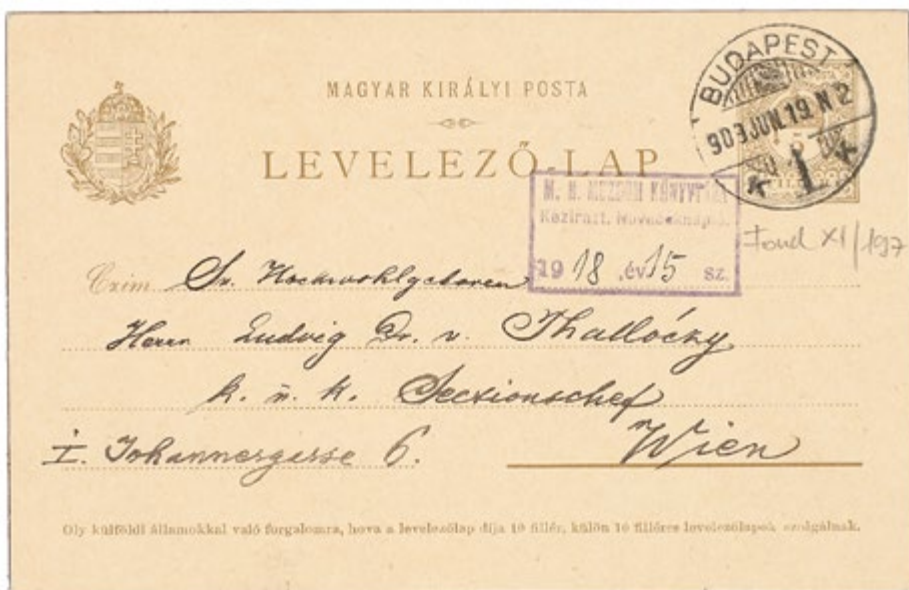 MAGYAR KIRÁLYI POSTA
LEVELEZŐ-LAP
BUDAPEST
903 JUN. 19. N 2
K 1 K
M. N. MUZEUM KÖNYVTÁRA
Kéziratt. Növedéknapló.
1918 .év 15 sz.
Fond XI/197
Czim Sr. Hochwohlgeboren
Herrn Ludwig Dr. v. Thallóczy
k. u. k. Sectionschef
I. Johannesgasse 6. Wien
Oly külföldi államokkal való forgalomra, hova a levelezőlap díja 10 fillér, külön 10 filléres levelezőlapok szolgálnak.